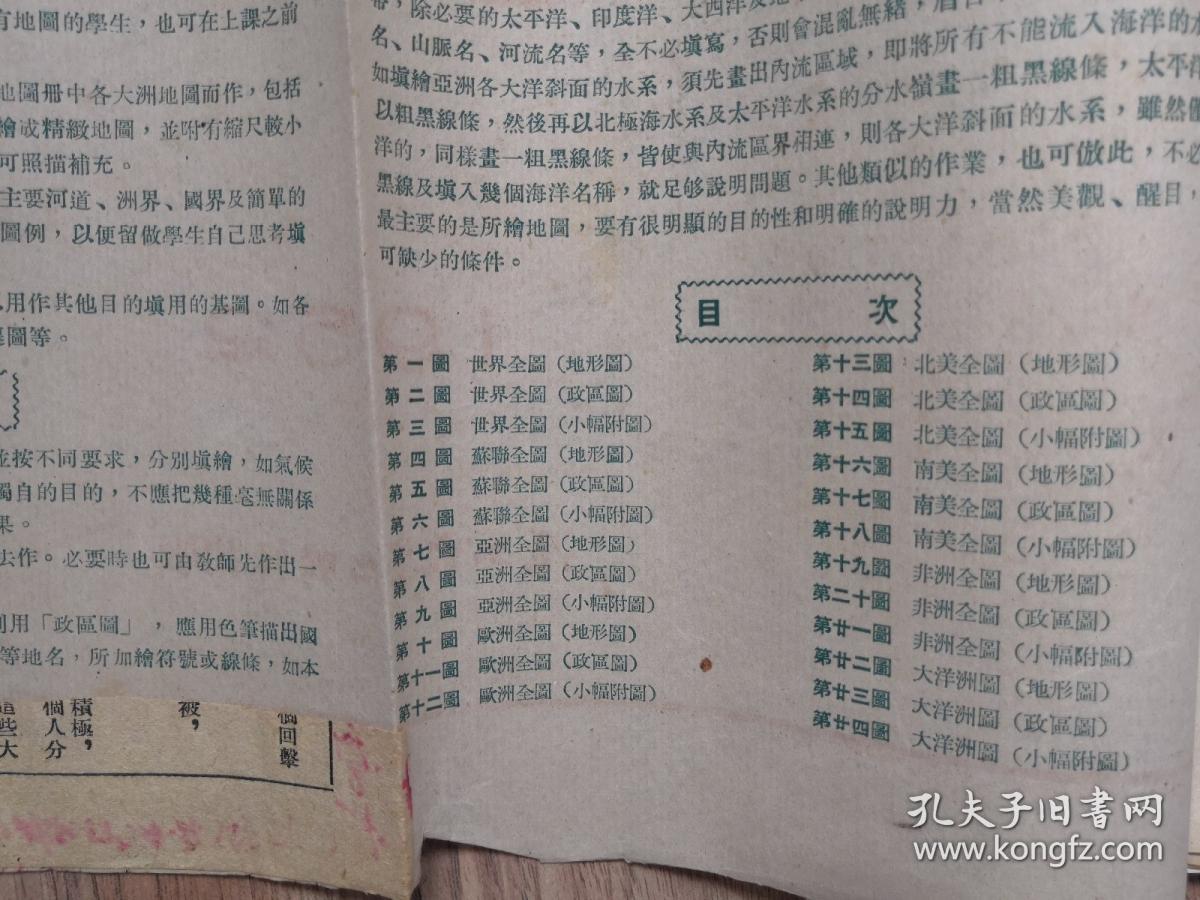 有地圖的學生，也可在上課之前
地圖冊中各大洲地圖而作，包括
繪或精緻地圖，並附有縮尺較小
可照描補充。
主要河道、洲界、國界及簡單的
圖例，以便留做學生自己思考塡
用作其他目的塡用的基圖。如各
圖等。
並按不同要求，分別塡繪，如氣候
獨自的目的，不應把幾種毫無關係
果。
去作。必要時也可由敎師先作出一
利用「政區圖」，應用色筆描出國
等地名，所加繪符號或線條，如本
除必要的太平洋、印度洋、大西洋及
名、山脈名、河流名等，全不必塡寫，否則會混亂無緒，眉
如塡繪亞洲各大洋斜面的水系，須先畫出內流區域，即將所有不能流入海洋的
以粗黑線條，然後再以北極海水系及太平洋水系的分水嶺畫一粗黑線條，太平
洋的，同樣畫一粗黑線條，皆使與內流區界相連，則各大洋斜面的水系，雖然
黑線及塡入幾個海洋名稱，就足够說明問題。其他類似的作業，也可倣此，不必
最主要的是所繪地圖，要有很明顯的目的性和明確的說明力，當然美觀、醒目，
可缺少的條件。
目次
第一圖 世界全圖（地形圖）
第二圖 世界全圖（政區圖）
第三圖 世界全圖（小幅附圖）
第四圖 蘇聯全圖（地形圖）
第五圖 蘇聯全圖（政區圖）
第六圖 蘇聯全圖（小幅附圖）
第七圖 亞洲全圖（地形圖）
第八圖 亞洲全圖（政區圖）
第九圖 亞洲全圖（小幅附圖）
第十圖 歐洲全圖（地形圖）
第十一圖 歐洲全圖（政區圖）
第十二圖 歐洲全圖（小幅附圖）
第十三圖 北美全圖（地形圖）
第十四圖 北美全圖（政區圖）
第十五圖 北美全圖（小幅附圖）
第十六圖 南美全圖（地形圖）
第十七圖 南美全圖（政區圖）
第十八圖 南美全圖（小幅附圖）
第十九圖 非洲全圖（地形圖）
第二十圖 非洲全圖（政區圖）
第廿一圖 非洲全圖（小幅附圖）
第廿二圖 大洋洲圖（地形圖）
第廿三圖 大洋洲圖（政區圖）
第廿四圖 大洋洲圖（小幅附圖）
個回擊
被，
積極，
個人分
這些大
孔夫子旧书网
www.kongfz.com